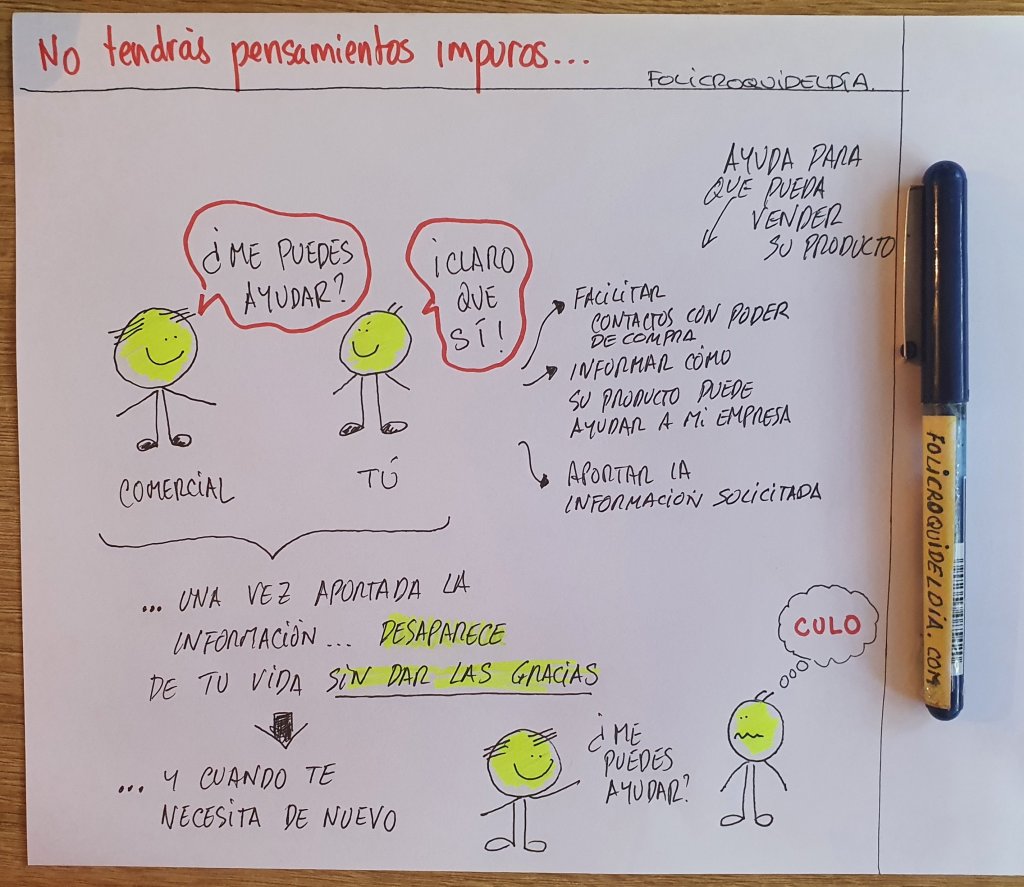 No tendrás pensamientos impuros...
FOLICROQUIDELDÍA.
AYUDA PARA
QUE PUEDA
VENDER
SU PRODUCTO
¿ME PUEDES
AYUDAR?
¡CLARO
QUE
SÍ!
FACILITAR
CONTACTOS CON PODER
DE COMPRA
INFORMAR CÓMO
SU PRODUCTO PUEDE
AYUDAR A MI EMPRESA
APORTAR LA
INFORMACIÓN SOLICITADA
COMERCIAL
TÚ
... UNA VEZ APORTADA LA
INFORMACIÓN... DESAPARECE
DE TU VIDA SIN DAR LAS GRACIAS
... Y CUANDO TE
NECESITA DE NUEVO
¿ME
PUEDES
AYUDAR?
CULO
FOLICROQUIDELDIA.COM